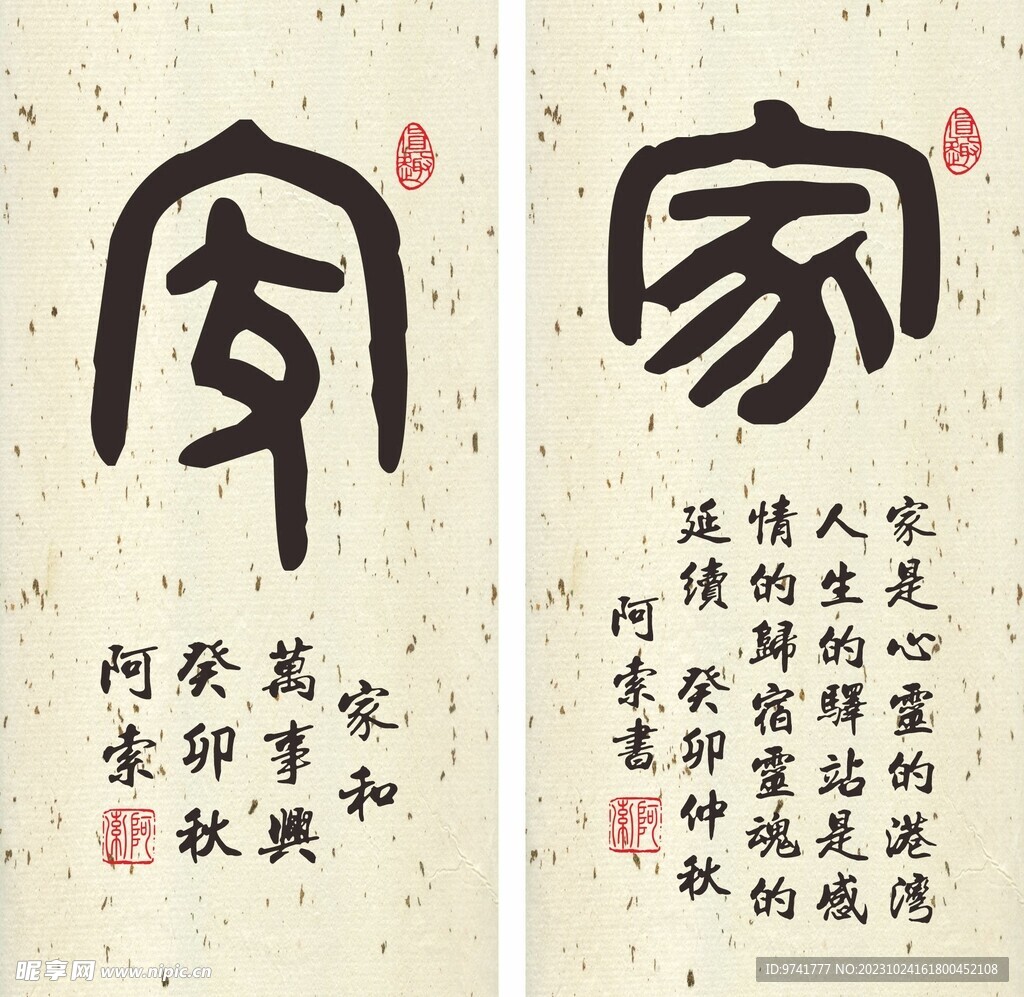 真趣
家和
萬事興
癸卯秋
阿索
阿索
真趣
家
家是心靈的港灣
人生的驛站是感
情的歸宿靈魂的
延續 癸卯仲秋
阿索書
阿索
昵享网 www.nipic.cn
ID:9741777 NO:20231024161800452108